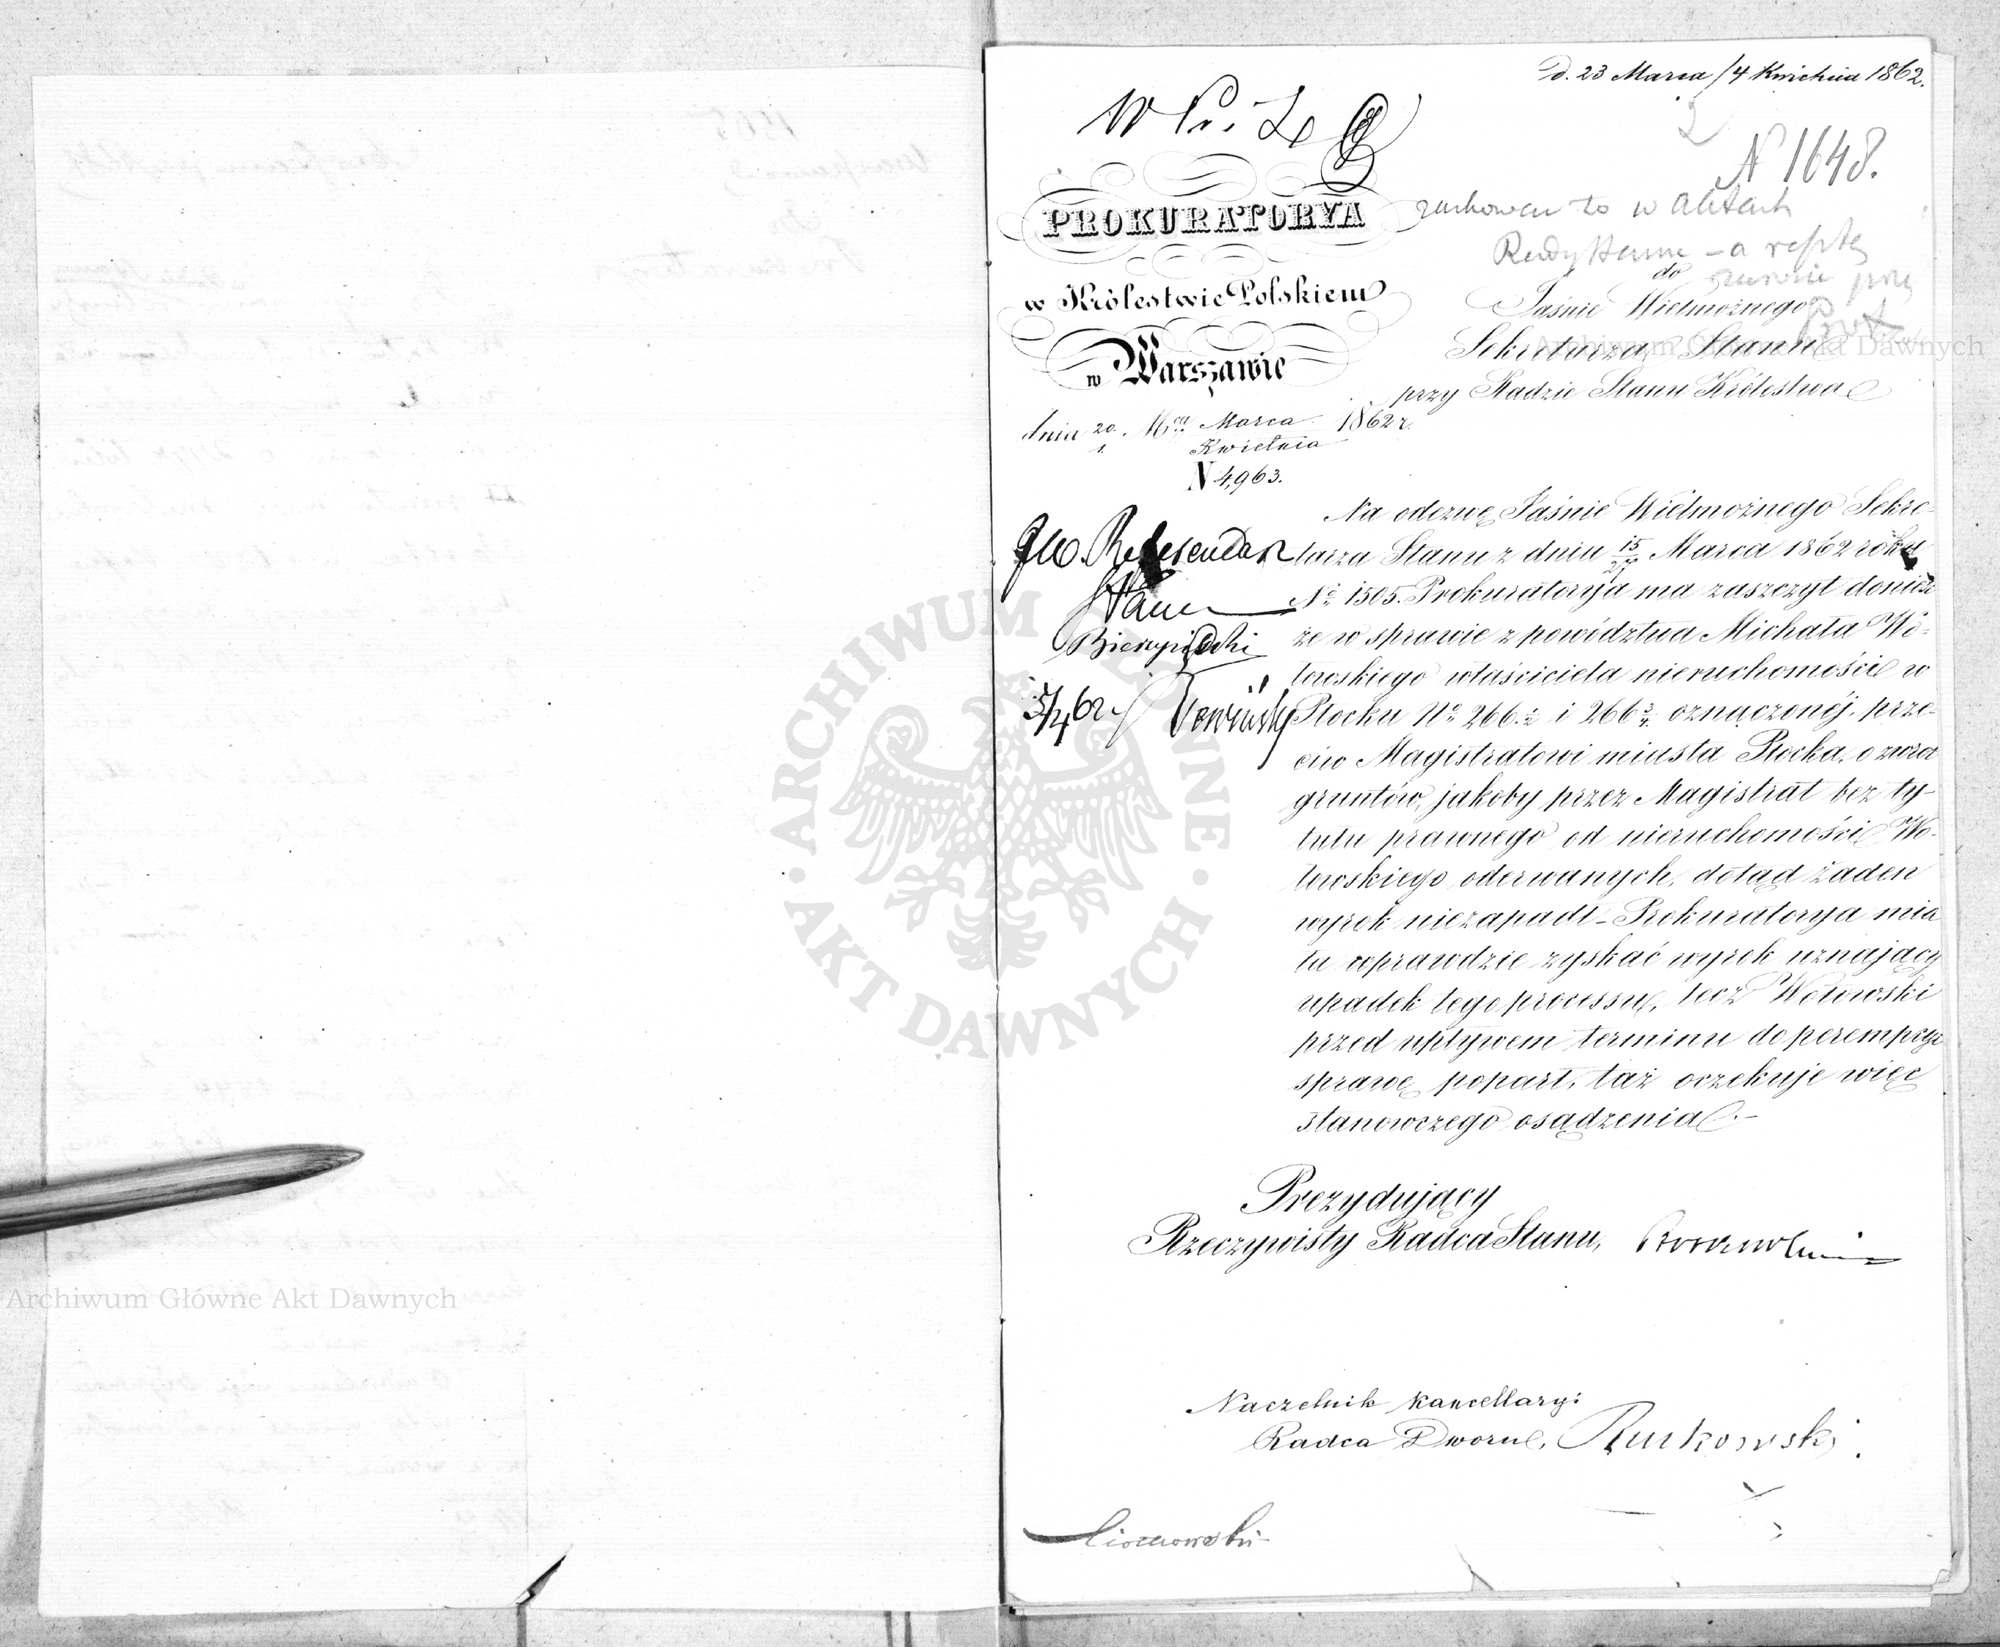 d. 23 Marca/4 Kwietnia 1862.
N 1648.
PROKURATORYA
w Królestwie Polskiem
w Warszawie
dnia 20/1 Mca Marca/Kwietnia 1862 r.
N 4,963.
w aktach
Rady Stanu - a
do
Jaśnie Wielmożnego
Sekretarza Stanu
przy Radzie Stanu Królestwa
Referendarz
Stanu
5/4 62
Na odezwę Jaśnie Wielmożnego Sekre-
tarza Stanu z dnia 15/27 Marca 1862 roku
No 1505. Prokuratorya ma zaszczyt donieść
że w sprawie z powództwa Michała Wo-
łowskiego właściciela nieruchomości w
Płocku No 266 1/2 i 266 3/4 oznaczonéj, prze-
ciw Magistratowi miasta Płocka, o zwrot
gruntów, jakoby przez Magistrat bez ty-
tułu prawnego od nieruchomości Wo-
łowskiego oderwanych, dotąd żaden
wyrok niezapadł - Prokuratorya mia
ła wprawdzie zyskać wyrok uznający
upadek tego processu, lecz Wołowski
przed upływem terminu do perempcyi
sprawę poparł, taż oczekuje więc
stanowczego osądzenia.-
Prezydujący
Rzeczywisty Radca Stanu,
Naczelnik Kancellaryi
Radca Dworu, Rutkowski
Archiwum Główne Akt Dawnych
Archiwum Główne Akt Dawnych
ARCHIWUM GŁÓWNE · AKT DAWNYCH ·